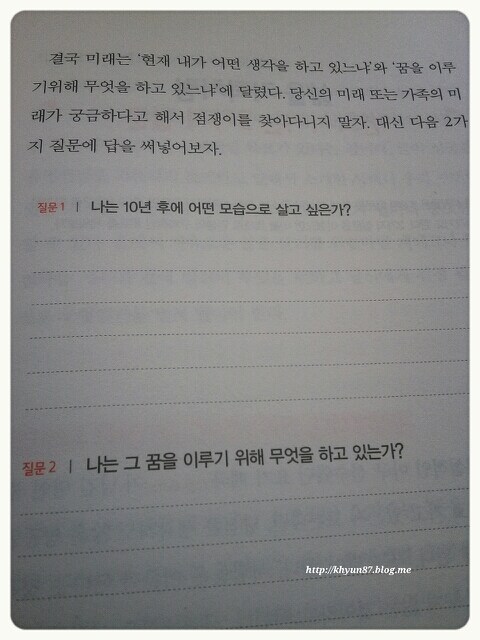 결국 미래는 '현재 내가 어떤 생각을 하고 있느냐'와 '꿈을 이루
기위해 무엇을 하고 있느냐'에 달렸다. 당신의 미래 또는 가족의 미
래가 궁금하다고 해서 점쟁이를 찾아다니지 말자. 대신 다음 2가
지 질문에 답을 써넣어보자.
질문 1 | 나는 10년 후에 어떤 모습으로 살고 싶은가?
질문 2 | 나는 그 꿈을 이루기 위해 무엇을 하고 있는가?
http://khyun87.blog.me